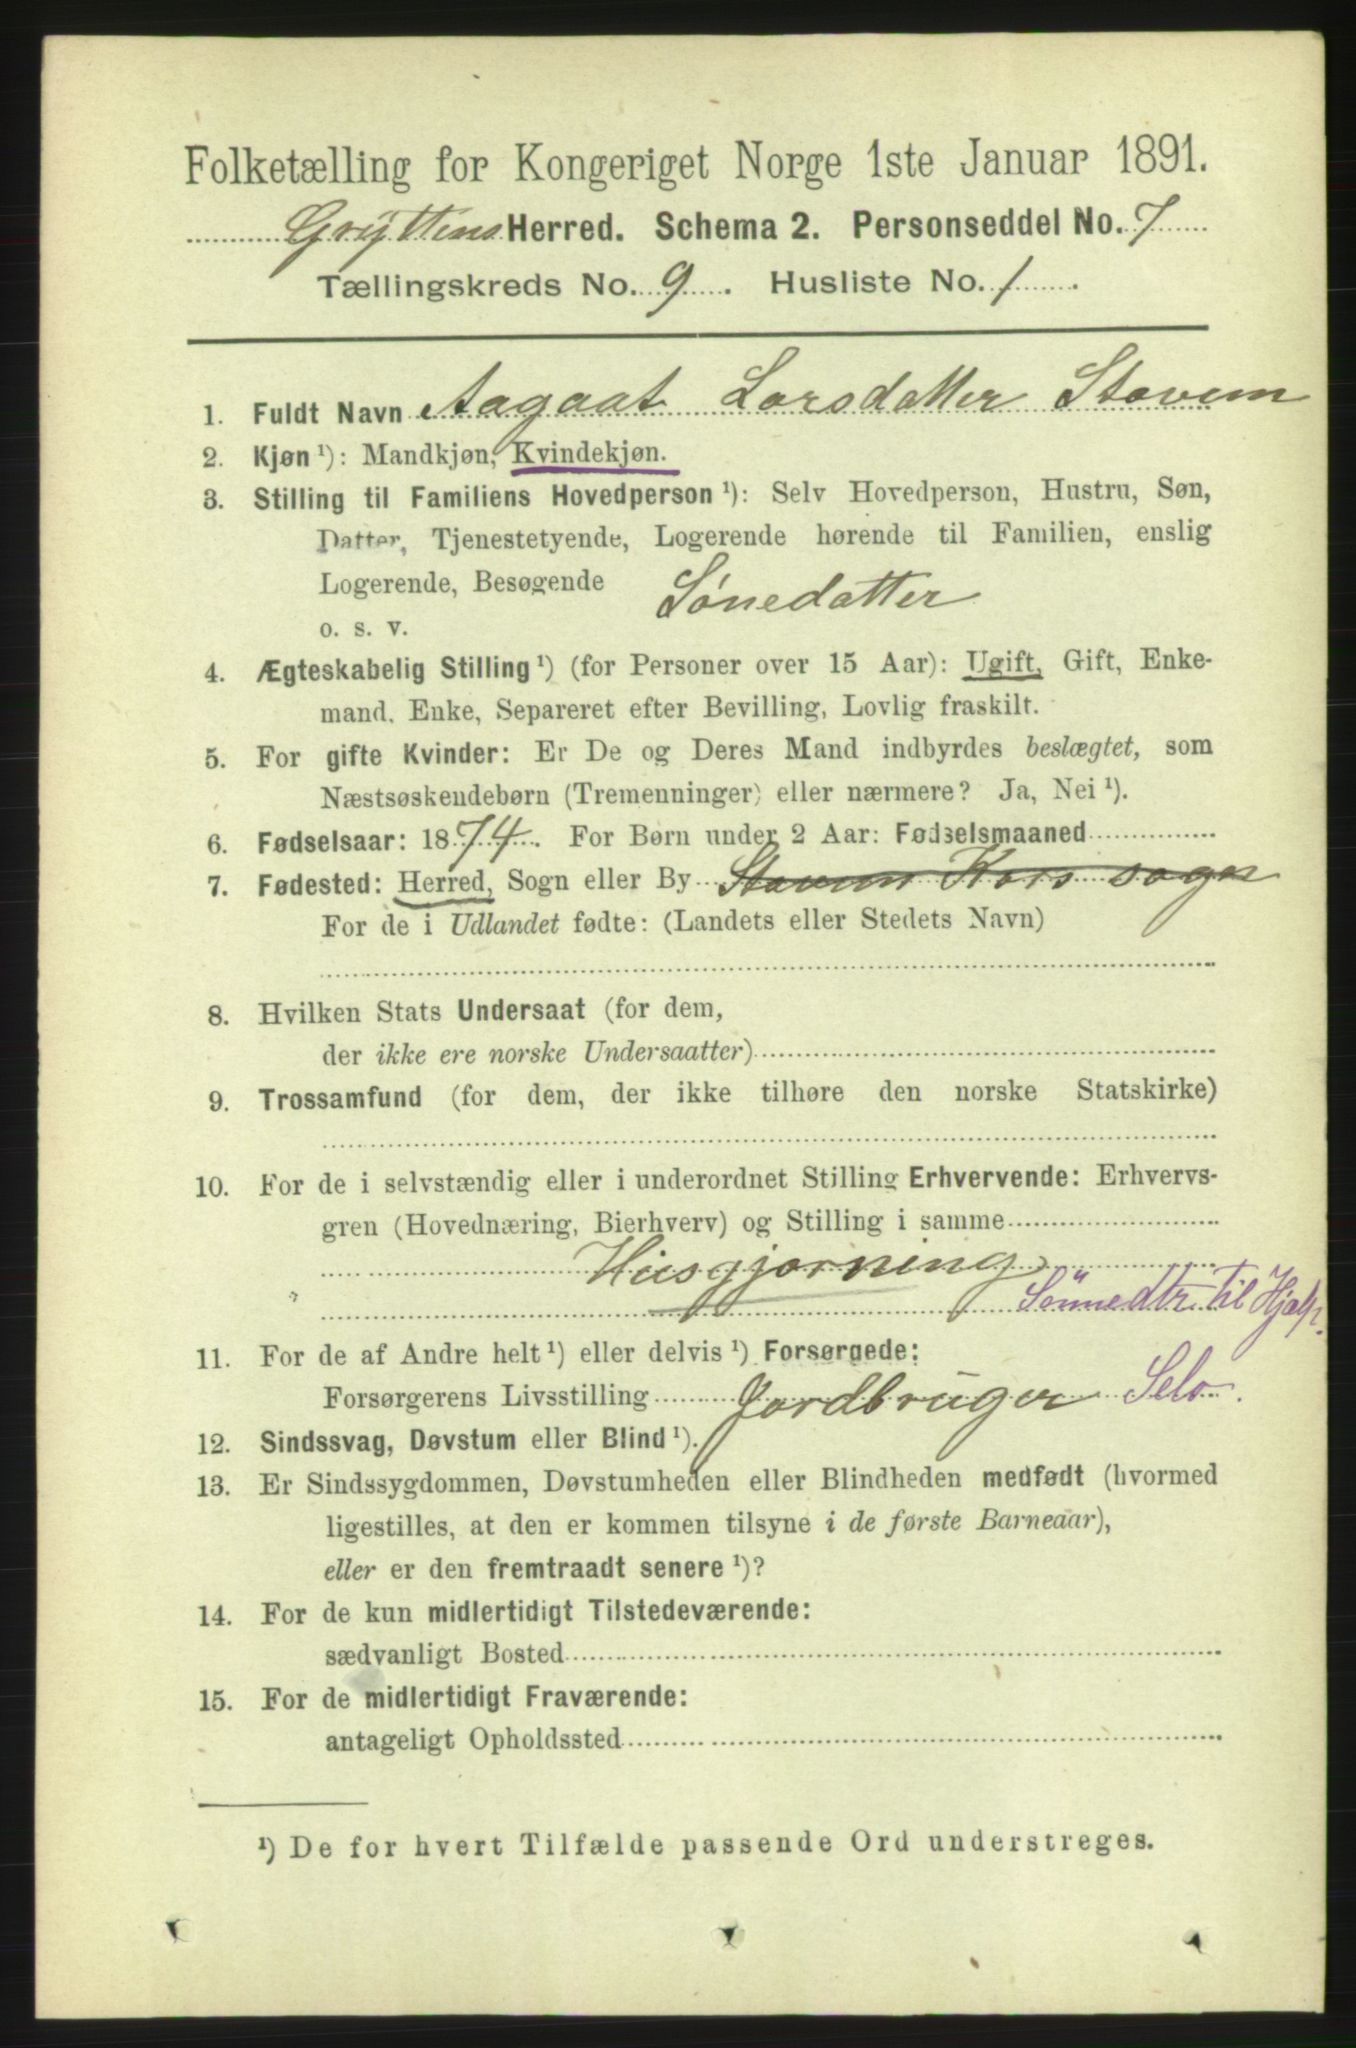 Folketælling for Kongeriget Norge 1ste Januar 1891.
Gryttens Herred. Schema 2. Personseddel No. 7
Tællingskreds No. 9. Husliste No. 1.
1. Fuldt Navn Aagaat Larsdatter Stavem
2. Kjøn ¹): Mandkjøn, Kvindekjøn.
3. Stilling til Familiens Hovedperson ¹): Selv Hovedperson, Hustru, Søn,
Datter, Tjenestetyende, Logerende hørende til Familien, enslig
Logerende, Besøgende Sønedatter
o. s. v.
4. Ægteskabelig Stilling ¹) (for Personer over 15 Aar): Ugift, Gift, Enke-
mand, Enke, Separeret efter Bevilling, Lovlig fraskilt.
5. For gifte Kvinder: Er De og Deres Mand indbyrdes beslægtet, som
Næstsøskendebørn (Tremenninger) eller nærmere? Ja, Nei ¹).
6. Fødselsaar: 1874. For Børn under 2 Aar: Fødselsmaaned
7. Fødested: Herred, Sogn eller By Stavem Kors sogn
For de i Udlandet fødte: (Landets eller Stedets Navn)
8. Hvilken Stats Undersaat (for dem,
der ikke ere norske Undersaatter)
9. Trossamfund (for dem, der ikke tilhøre den norske Statskirke)
10. For de i selvstændig eller i underordnet Stilling Erhvervende: Erhvervs-
gren (Hovednæring, Bierhverv) og Stilling i samme
Husgjørning
Sönnedtr. til Hjælp.
11. For de af Andre helt ¹) eller delvis ¹) Forsørgede:
Forsørgerens Livsstilling Jordbruger Selv.
12. Sindssvag, Døvstum eller Blind ¹).
13. Er Sindssygdommen, Døvstumheden eller Blindheden medfødt (hvormed
ligestilles, at den er kommen tilsyne i de første Barneaar),
eller er den fremtraadt senere ¹)?
14. For de kun midlertidigt Tilstedeværende:
sædvanligt Bosted
15. For de midlertidigt Fraværende:
antageligt Opholdssted
¹) De for hvert Tilfælde passende Ord understreges.